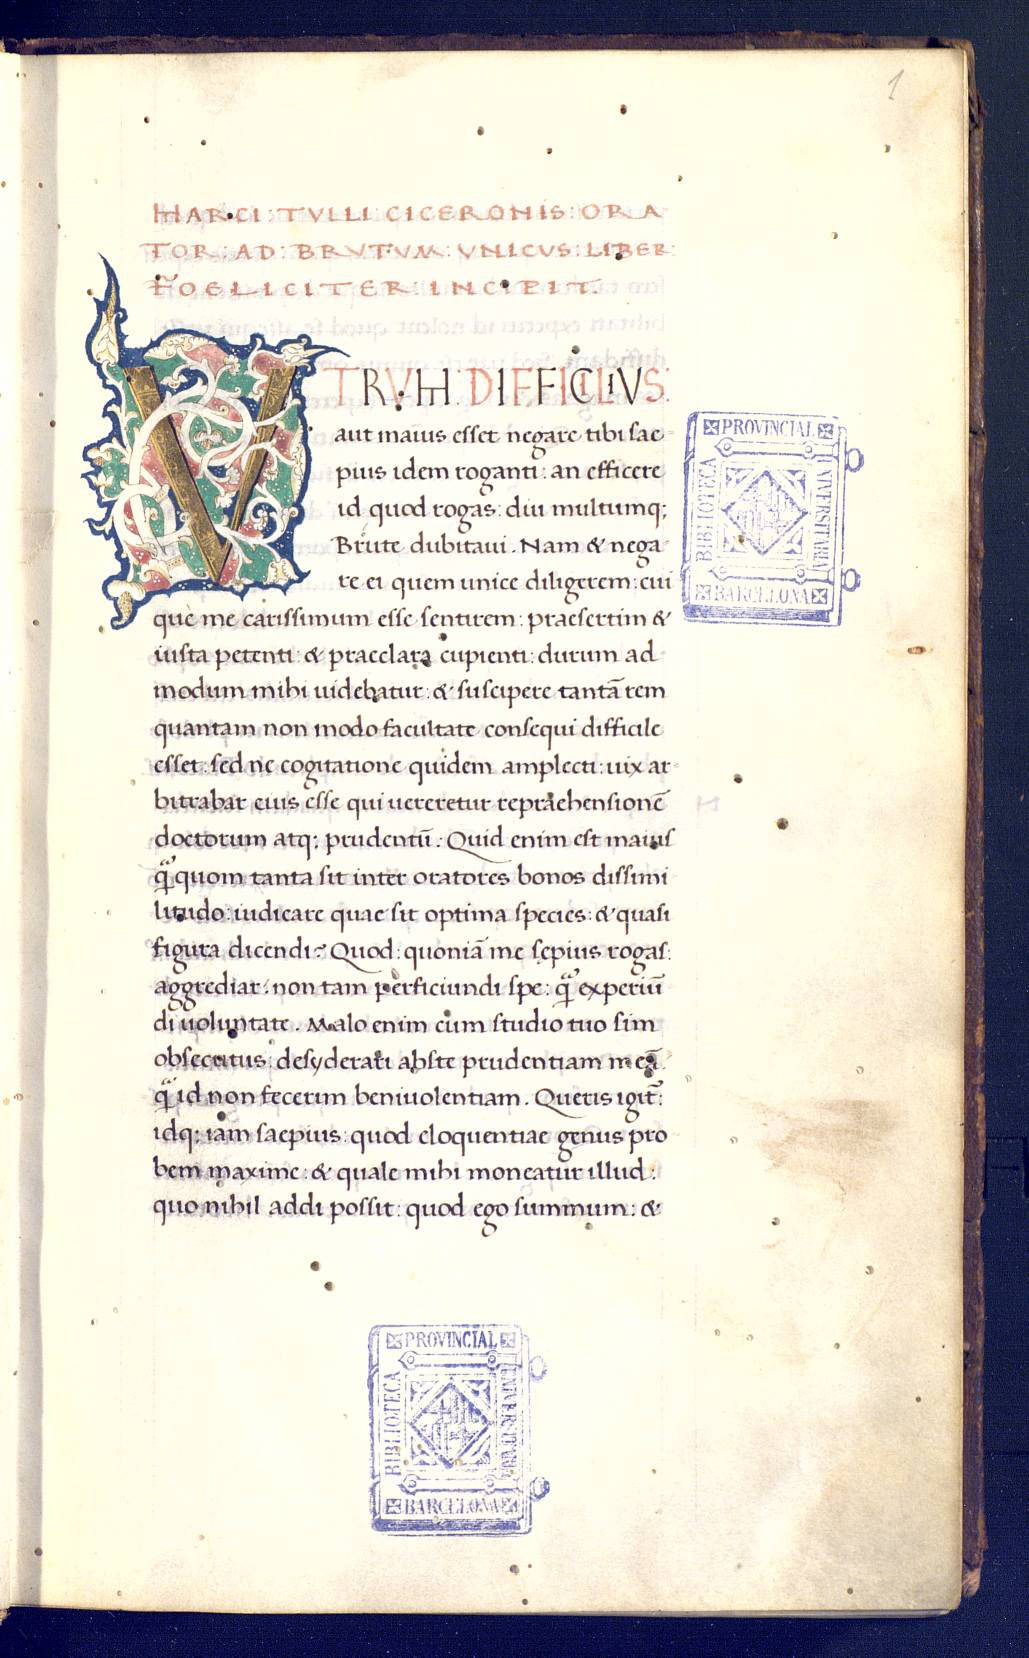 1
MARCI : TVLLI : CICERONIS : ORA
TOR : AD : BRVTVM : VNICVS : LIBER :
FOELICITER : INCIPIT .
VTRVM DIFFICILIVS
aut maius esset negare tibi sae
pius idem roganti : an efficere
id quod rogas : diu multumq;
Brute dubitaui . Nam & nega
re ei quem unice diligerem : cui
que me carissimum esse sentirem : praesertim &
iusta petenti : & praeclara cupienti : durum ad
modum mihi uidebatur : & suscipere tantā rem
quantam non modo facultate consequi difficile
esset : sed ne cogitatione quidem amplecti : uix ar
bitrabar eius esse qui uereretur repraehensionē
doctorum atq; prudentū . Quid enim est maius
q̃ quom tanta sit inter oratores bonos dissimi
litudo : iudicare quae sit optima species : & quasi
figura dicendi ? Quod : quoniā me sepius rogas :
aggrediar : non tam perficiundi spe : q̃ experiū
di uoluntate . Malo enim cum studio tuo sim
obsecutus : desyderari abste prudentiam meā :
q̃ id non fecerim beniuolentiam . Queris igit̃ :
idq; iam saepius : quod eloquentiae genus pro
bem maxime : & quale mihi moneatur illud :
quo nihil addi possit : quod ego summum : &
PROVINCIAL
BIBLIOTECA
UNIVERSITARIA
BARCELONA
PROVINCIAL
BIBLIOTECA
UNIVERSITARIA
BARCELONA